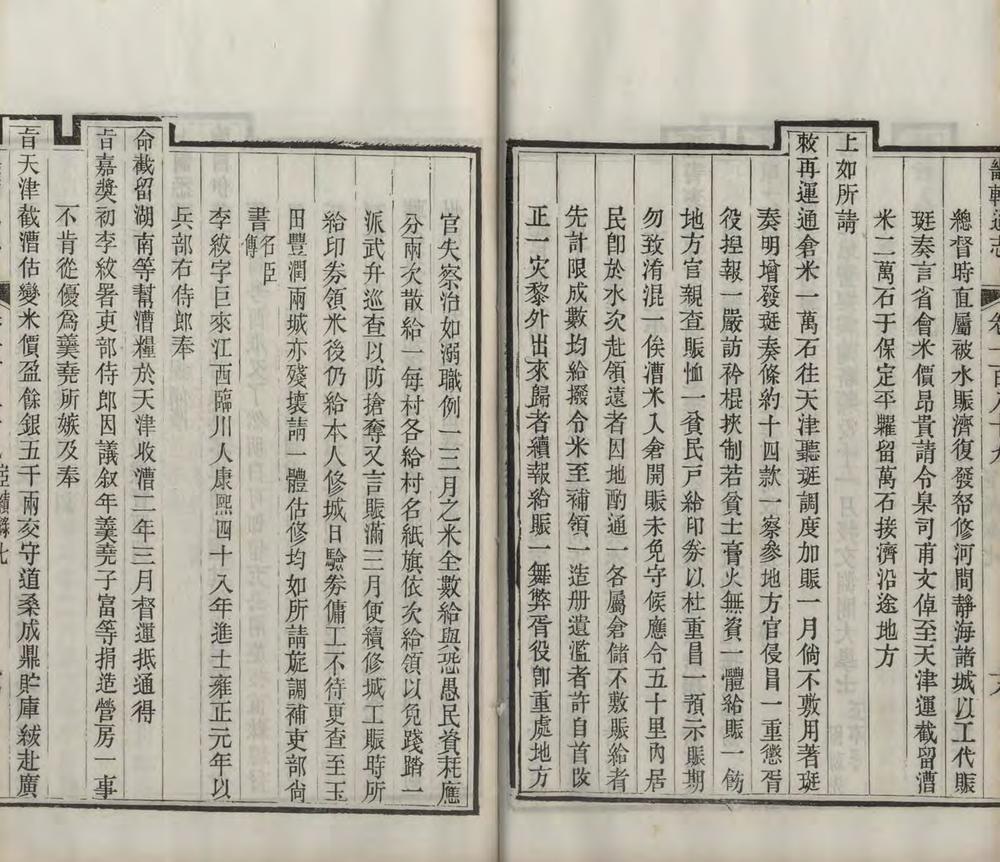 畿輔通志 卷一百八十九 十八
總督時直屬被水賑濟復發帑修河間靜海諸城以工代賑
珽奏言省會米價昂貴請令臬司甫文倬至天津運截留漕
米二萬石于保定平糶留萬石接濟沿途地方
上如所請
敕再運通倉米一萬石往天津聽珽調度加賑一月倘不敷用著珽
奏明增發珽奏條約十四款一察參地方官侵冒一重懲胥
役捏報一嚴訪衿棍挾制若貧士膏火無資一體給賑一飭
地方官親查賑恤一貧民戸給印劵以杜重冒一預示賑期
勿致淆混一俟漕米入倉開賑未免守候應令五十里內居
民卽於水次赴領遠者因地酌通一各屬倉儲不敷賑給者
先計限成數均給撥令米至補領一造册遺濫者許自首改
正一灾黎外出來歸者續報給賑一舞弊胥役卽重處地方
官失察治如溺職例一三月之米全數給與恐愚民資耗應
分兩次散給一每村各給村名紙旗依次給領以免踐踏一
派武弁巡查以防搶奪又言賑滿三月便續修城工賑時所
給印劵領米後仍給本人修城日驗劵傭工不待更查至玉
田豐潤兩城亦殘壞請一體估修均如所請旋調補吏部尙
書名臣傳
李紱字巨來江西臨川人康熙四十八年進士雍正元年以
兵部右侍郎奉
命截留湖南等幫漕糧於天津收漕二年三月督運抵通得
旨嘉獎初李紱署吏部侍郎因議叙年羹堯子富等捐造營房一事
不肯從優爲羹堯所嫉及奉
旨天津截漕估變米價盈餘銀五千兩交守道桑成鼎貯庫紱赴廣